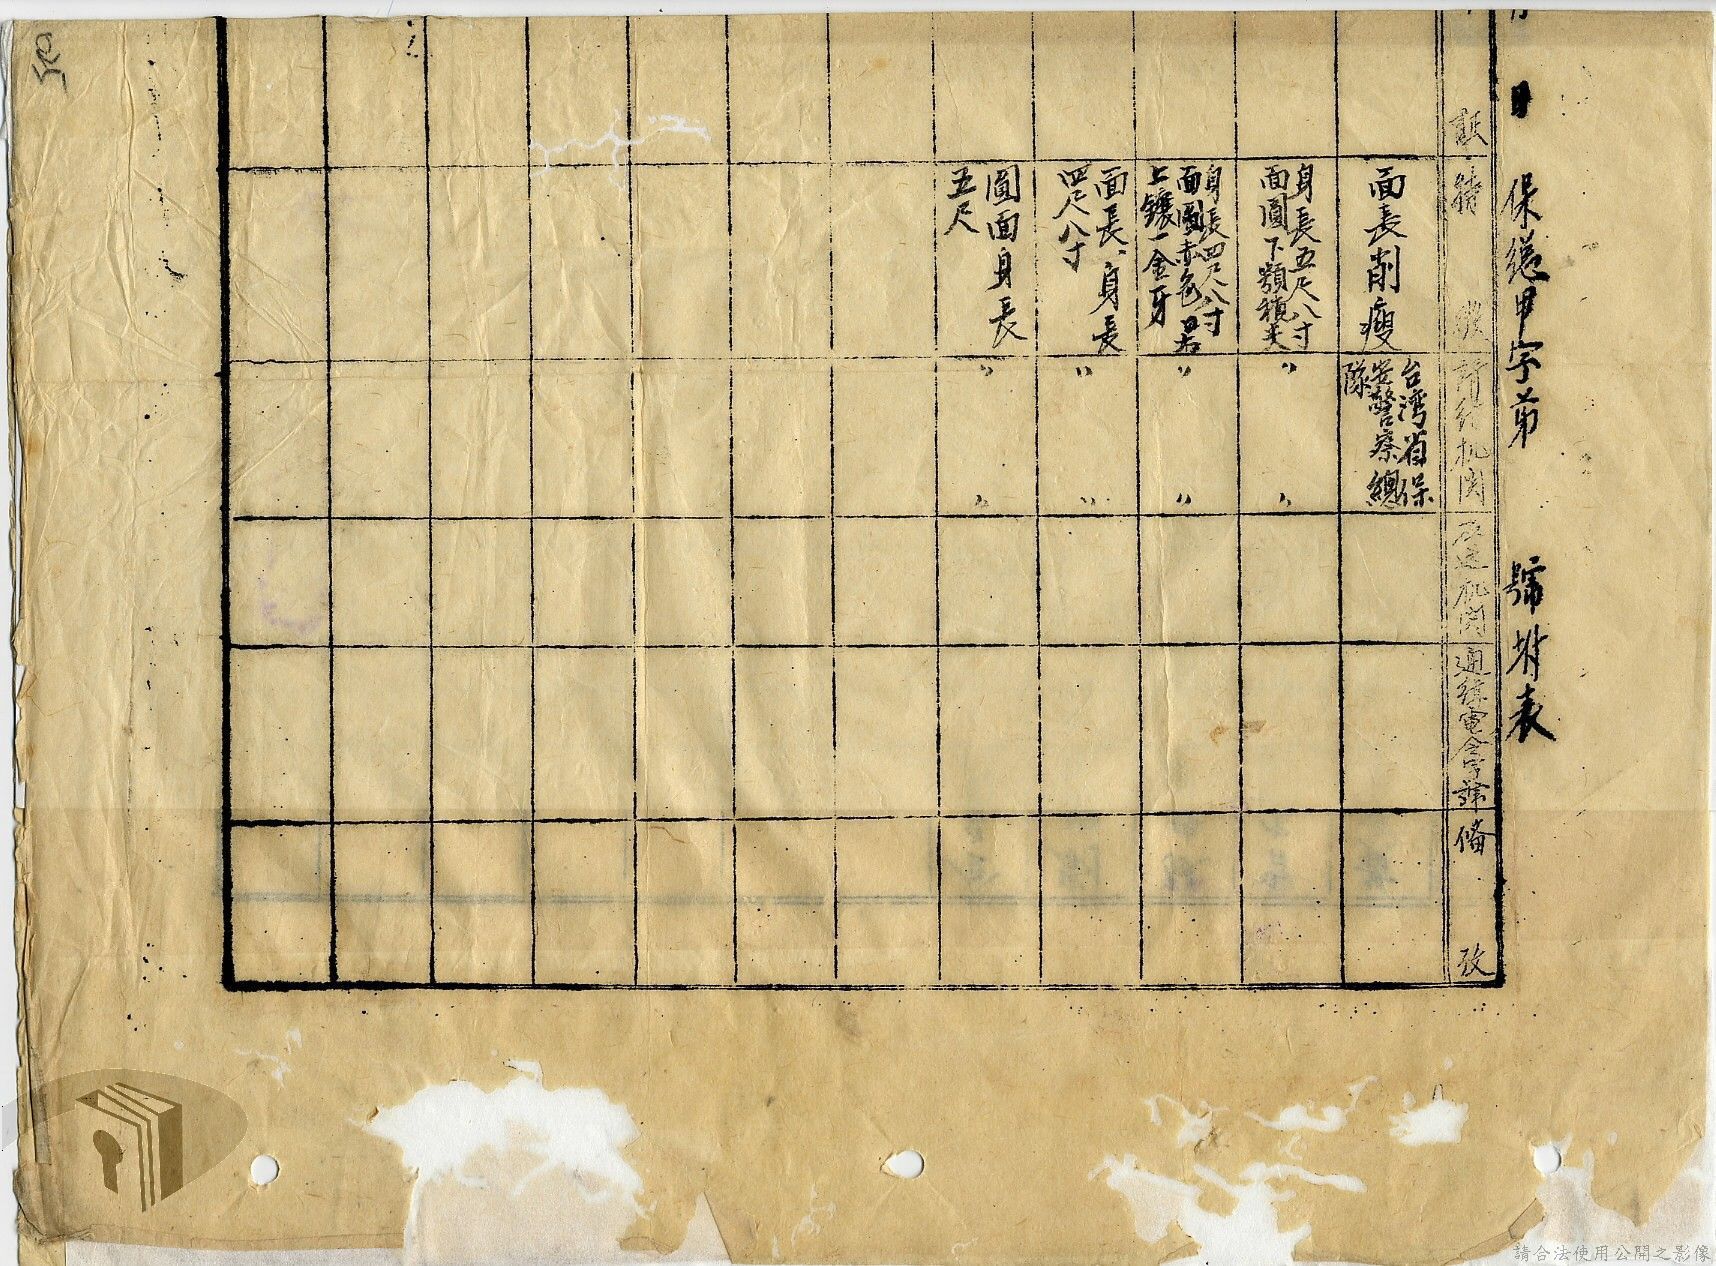 日 保總甲字第 號附表
特 徵
請緝机関
通緝電令字號
備 攷
面長削瘦
台灣省保
安警察總
隊
身長五尺八寸
面圓下顎積尖
〃 〃
身長四尺八寸
面圓赤色
上鑲一金牙
〃 〃
面長、身長
四尺八寸
〃 〃
圓面身長
五尺
〃 〃
請合法使用公開之影像